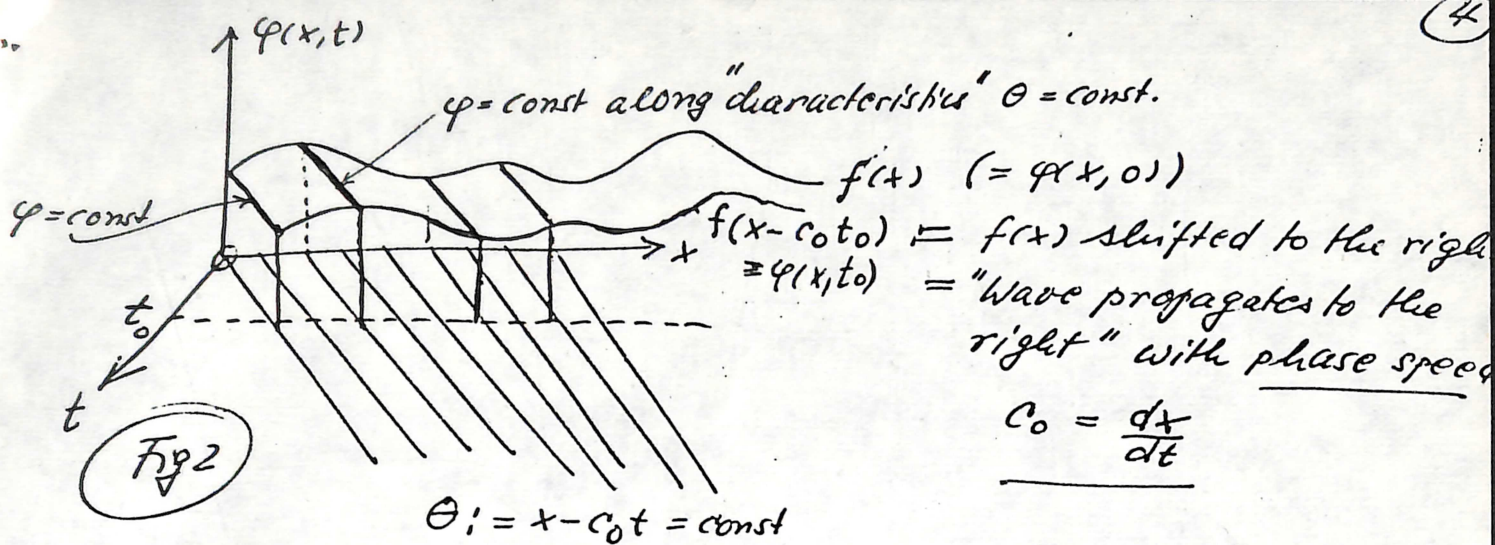 4
φ(x,t)
φ = const along "characteristics" θ = const.
f(x) (= φ(x,0))
φ=const
f(x-c₀t₀) := f(x) shifted to the
≡φ(x,t₀) = "Wave propagates to the
right" with phase
x
t₀
t
c₀ = dx/dt
Fig 2
θ := x-c₀t = const